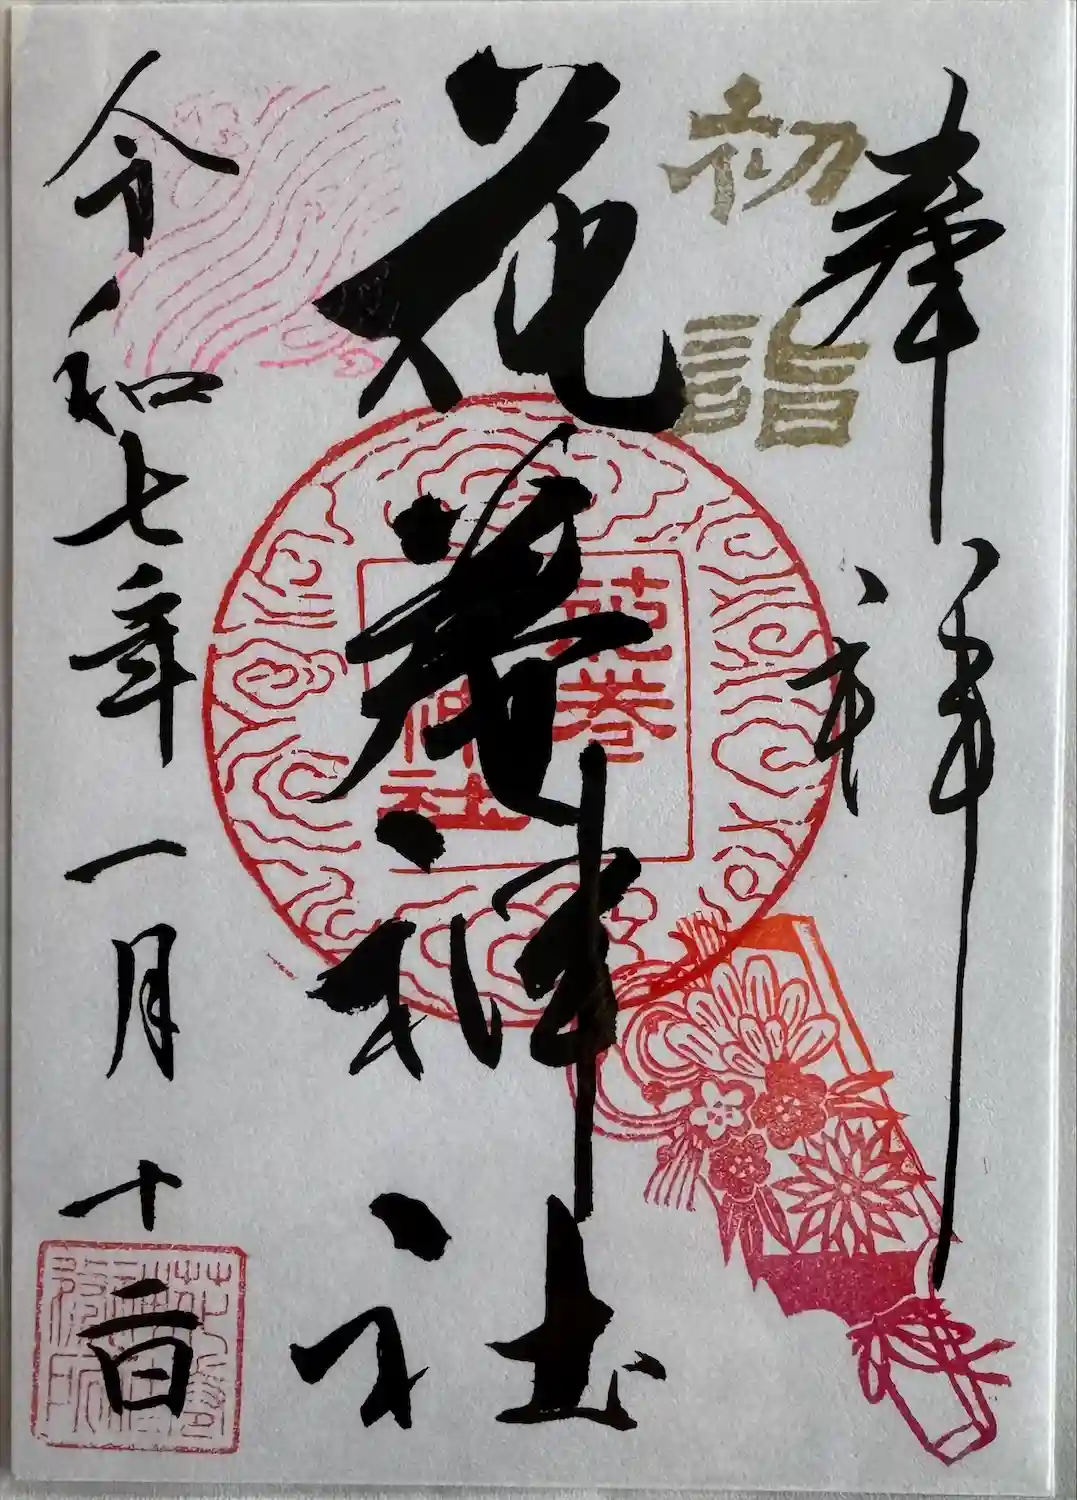 奉拝
初詣
花巻神社
花巻
神社
令和七年一月十二日